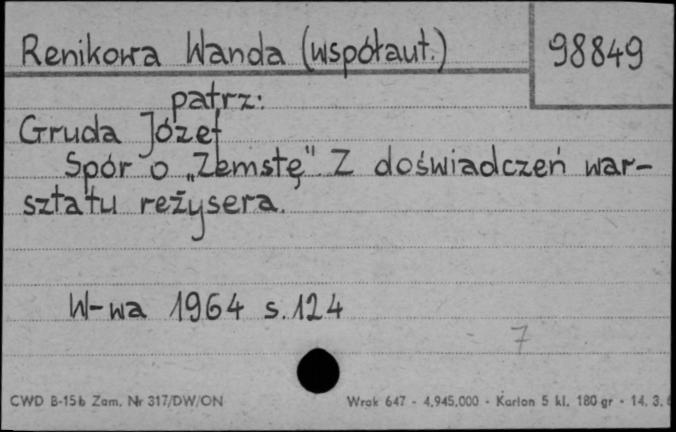 Renikowa Wanda (współaut.) 98849
patrz:
Gruda Józef
Spór o „Zemstę". Z doświadczeń war-
sztatu reżysera.
W-wa 1964 s. 124
7
CWD B-15b Zam. Nr 317/DW/ON Wrak 647 - 4.945.000 - Karton 5 kl. 180 gr - 14. 3.